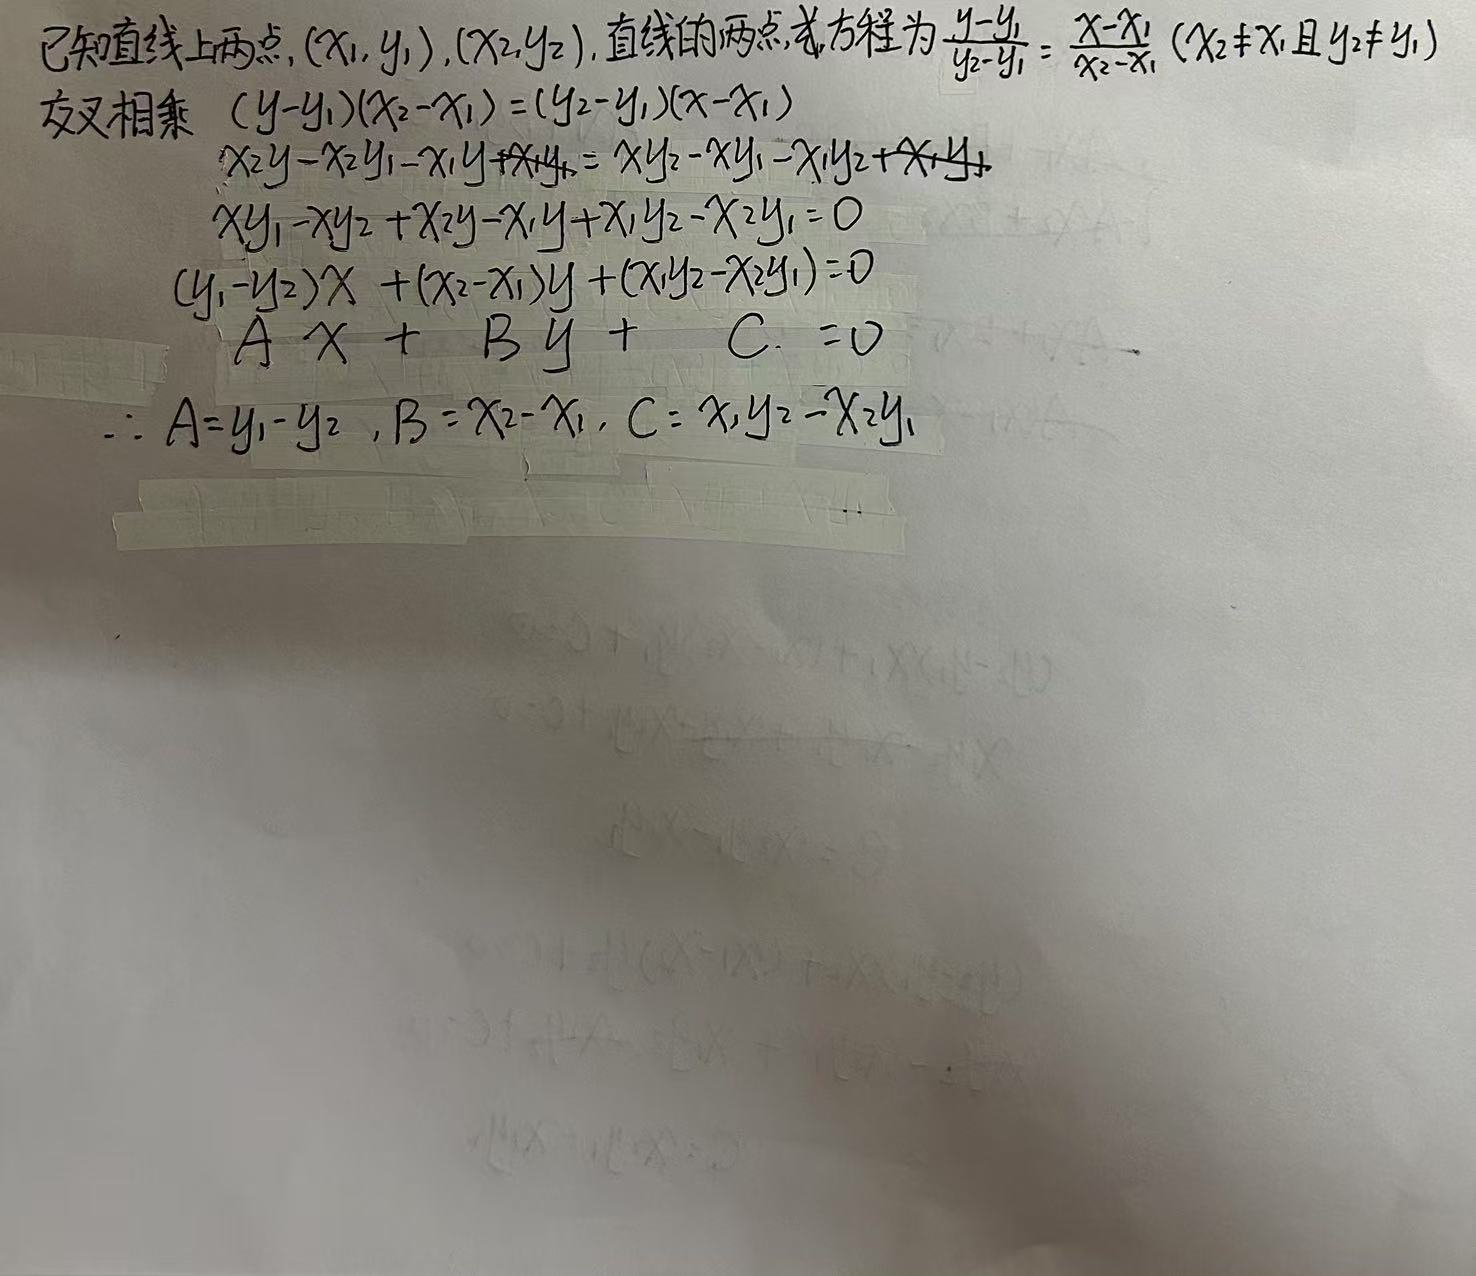 已知直线上两点,(x₁,y₁),(x₂,y₂),直线的两点式方程为 (y-y₁)/(y₂-y₁) = (x-x₁)/(x₂-x₁) (x₂≠x₁且y₂≠y₁)
交叉相乘 (y-y₁)(x₂-x₁)=(y₂-y₁)(x-x₁)
x₂y-x₂y₁-x₁y+x₁y₁=xy₂-xy₁-x₁y₂+x₁y₁
xy₁-xy₂+x₂y-x₁y+x₁y₂-x₂y₁=0
(y₁-y₂)x+(x₂-x₁)y+(x₁y₂-x₂y₁)=0
Ax+By+C=0
∴A=y₁-y₂,B=x₂-x₁,C=x₁y₂-x₂y₁